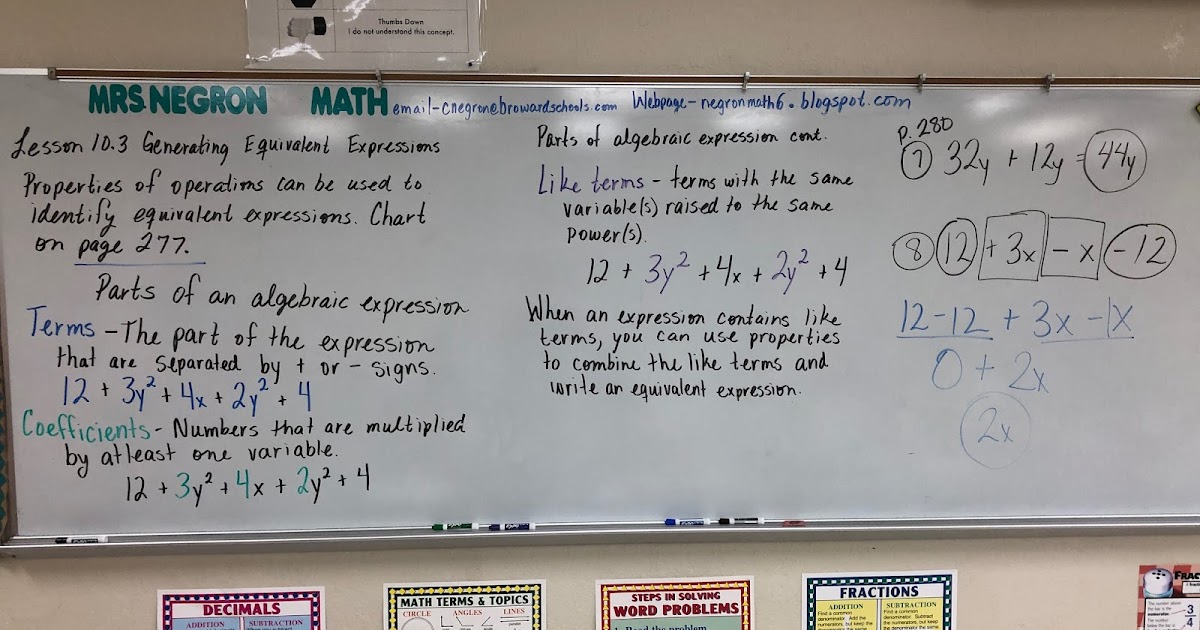 Thumbs Down
I do not understand this concept.
MRS. NEGRON MATH email-cnegron@browardschools.com Webpage-negronmath6.blogspot.com
Lesson 10.3 Generating Equivalent Expressions
Properties of operations can be used to
identify equivalent expressions. Chart
on page 277.
Parts of an algebraic expression
Terms - The part of the expression
that are separated by + or - signs.
12 + 3y² + 4x + 2y² + 4
Coefficients - Numbers that are multiplied
by atleast one variable.
12 + 3y² + 4x + 2y² + 4
Parts of algebraic expression cont.
Like terms - terms with the same
variable(s) raised to the same
power(s).
12 + 3y² + 4x + 2y² + 4
When an expression contains like
terms, you can use properties
to combine the like terms and
write an equivalent expression.
p. 280
7 32y + 12y = 44y
8 12 + 3x - x - 12
12-12 + 3x - 1x
0 + 2x
2x
DECIMALS
ADDITION SUBTRACTION
MATH TERMS & TOPICS
CIRCLE ANGLES LINES
STEPS IN SOLVING
WORD PROBLEMS
1. Read the problem
FRACTIONS
ADDITION SUBTRACTION
Find a common
denominator. Add the
numerators, but keep
the denominator the same
Find a common
denominator. Subtract the
numerators, but keep
the denominator the same